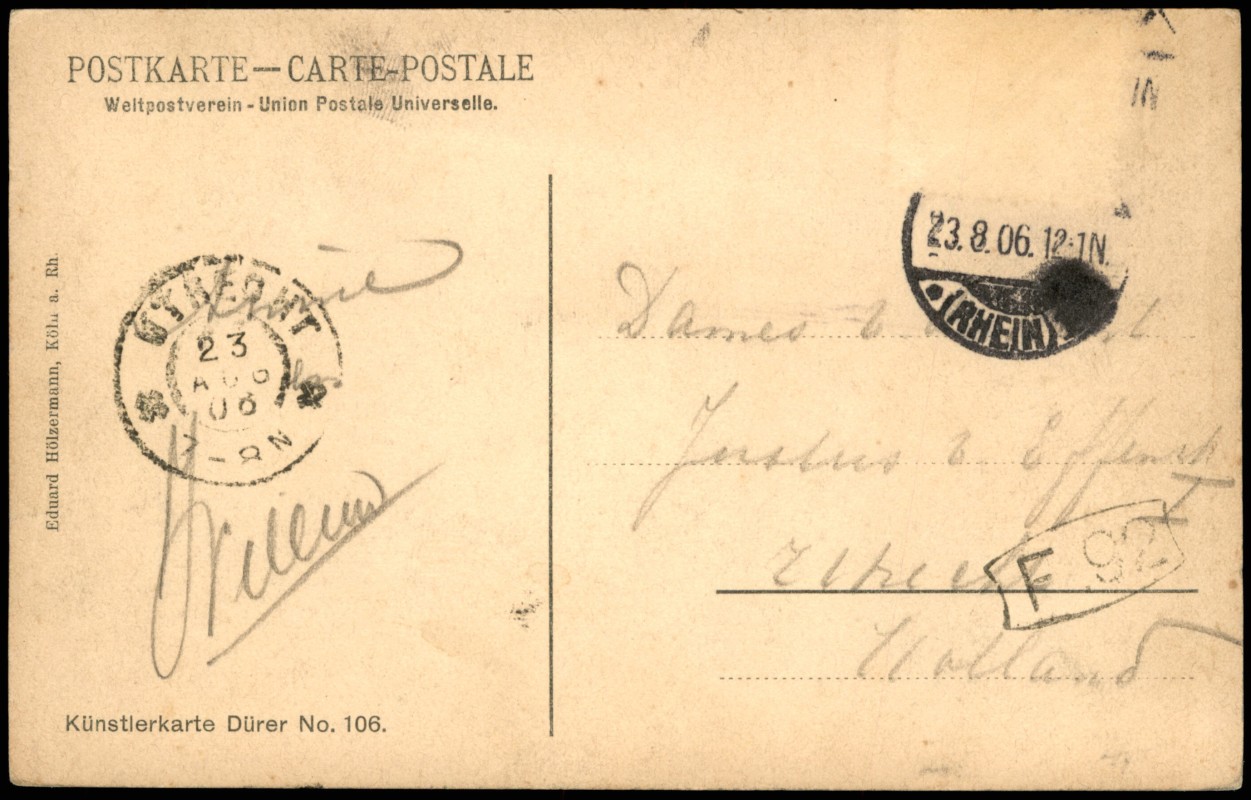 POSTKARTE — CARTE-POSTALE
Weltpostverein - Union Postale Universelle.
IN
23.8.06. 12-1N.
(RHEIN)
UTRECHT
23
AUG
06
7-8N
Willem
Eduard Hölzermann, Köln a. Rh.
Künstlerkarte Dürer No. 106.
Dames v
Justus v Effenstr
Utrecht
F 92
Holland